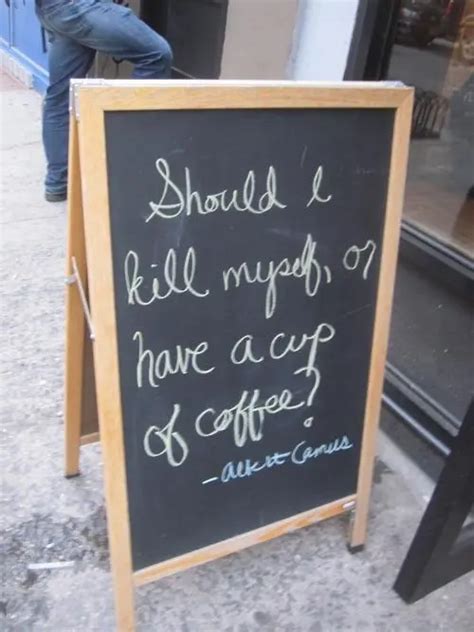 Should I
kill myself, or
have a cup
of coffee?
- Albert Camus